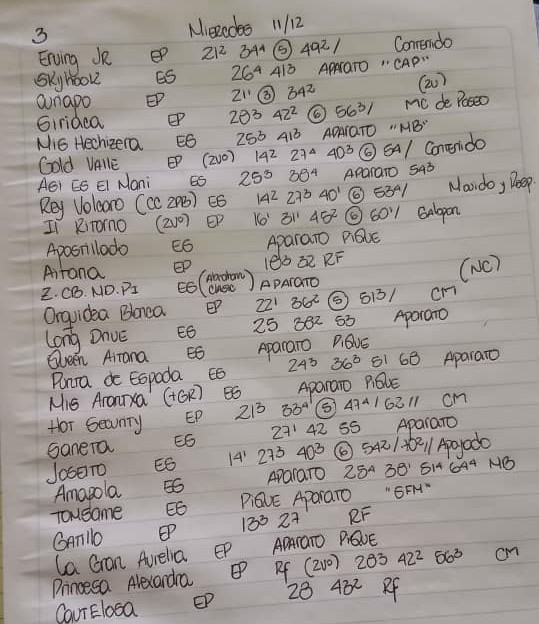 3 Miercoles 11/12
Erving JR EP 21² 34⁴ ⑤ 49² / Contenido
SKyHook EG 26⁴ 41³ APARATO "CAP"
Guapo EP 21¹ ③ 34² (2U)
Siriaca EP 28³ 42² ⑥ 56³/ MC de Paseo
Mis Hechizera EG 25³ 41³ APARATO "MB"
Gold Valle EP (2U⁰) 14² 27⁴ 40³ ⑥ 54/ Contenido
Asi Es El Mani EG 25³ 38⁴ APARATO 54³
Rey Volcano (CC 2PB) EG 14² 27³ 40¹ ⑥ 53⁴/ Movido y Resp.
Il Ritorno (2U⁰) EP 16¹ 31¹ 45² ⑥ 60¹/ Galopon
Apostillado EG Aparato PiQUE
Aitana EP 18³ 32 RF
Z. CB. ND. PI EG APARATO (NC)
Orquidea Blanca EP 22¹ 36² ⑤ 51³/ CM
Long Drive EG 25 38² 53 Aparato
Queen Aitana EG Aparato PiQUE
Punta de Espada EG 24³ 36³ 51 68 Aparato
Mis Arantxa (+GR) EG Aparato PiQUE
Hot Security EP 21³ 33⁴ ⑤ 47⁴/ 62// CM
Ganera EG 27¹ 42 55 Aparato
Joseito EG 14¹ 27³ 40³ ⑥ 54²/ 70²// Apoyado
Amapola EG APARATO 25⁴ 38¹ 51⁴ 64⁴ MB
Tomesome EG PiQUE Aparato "SFM"
Ganillo EP 13³ 27 RF
La Gran Aurelia EP APARATO PiQUE
Princesa Alexandra EP Rf (2U⁰) 28³ 42² 56³ CM
Cautelosa EP 28 43² Rf